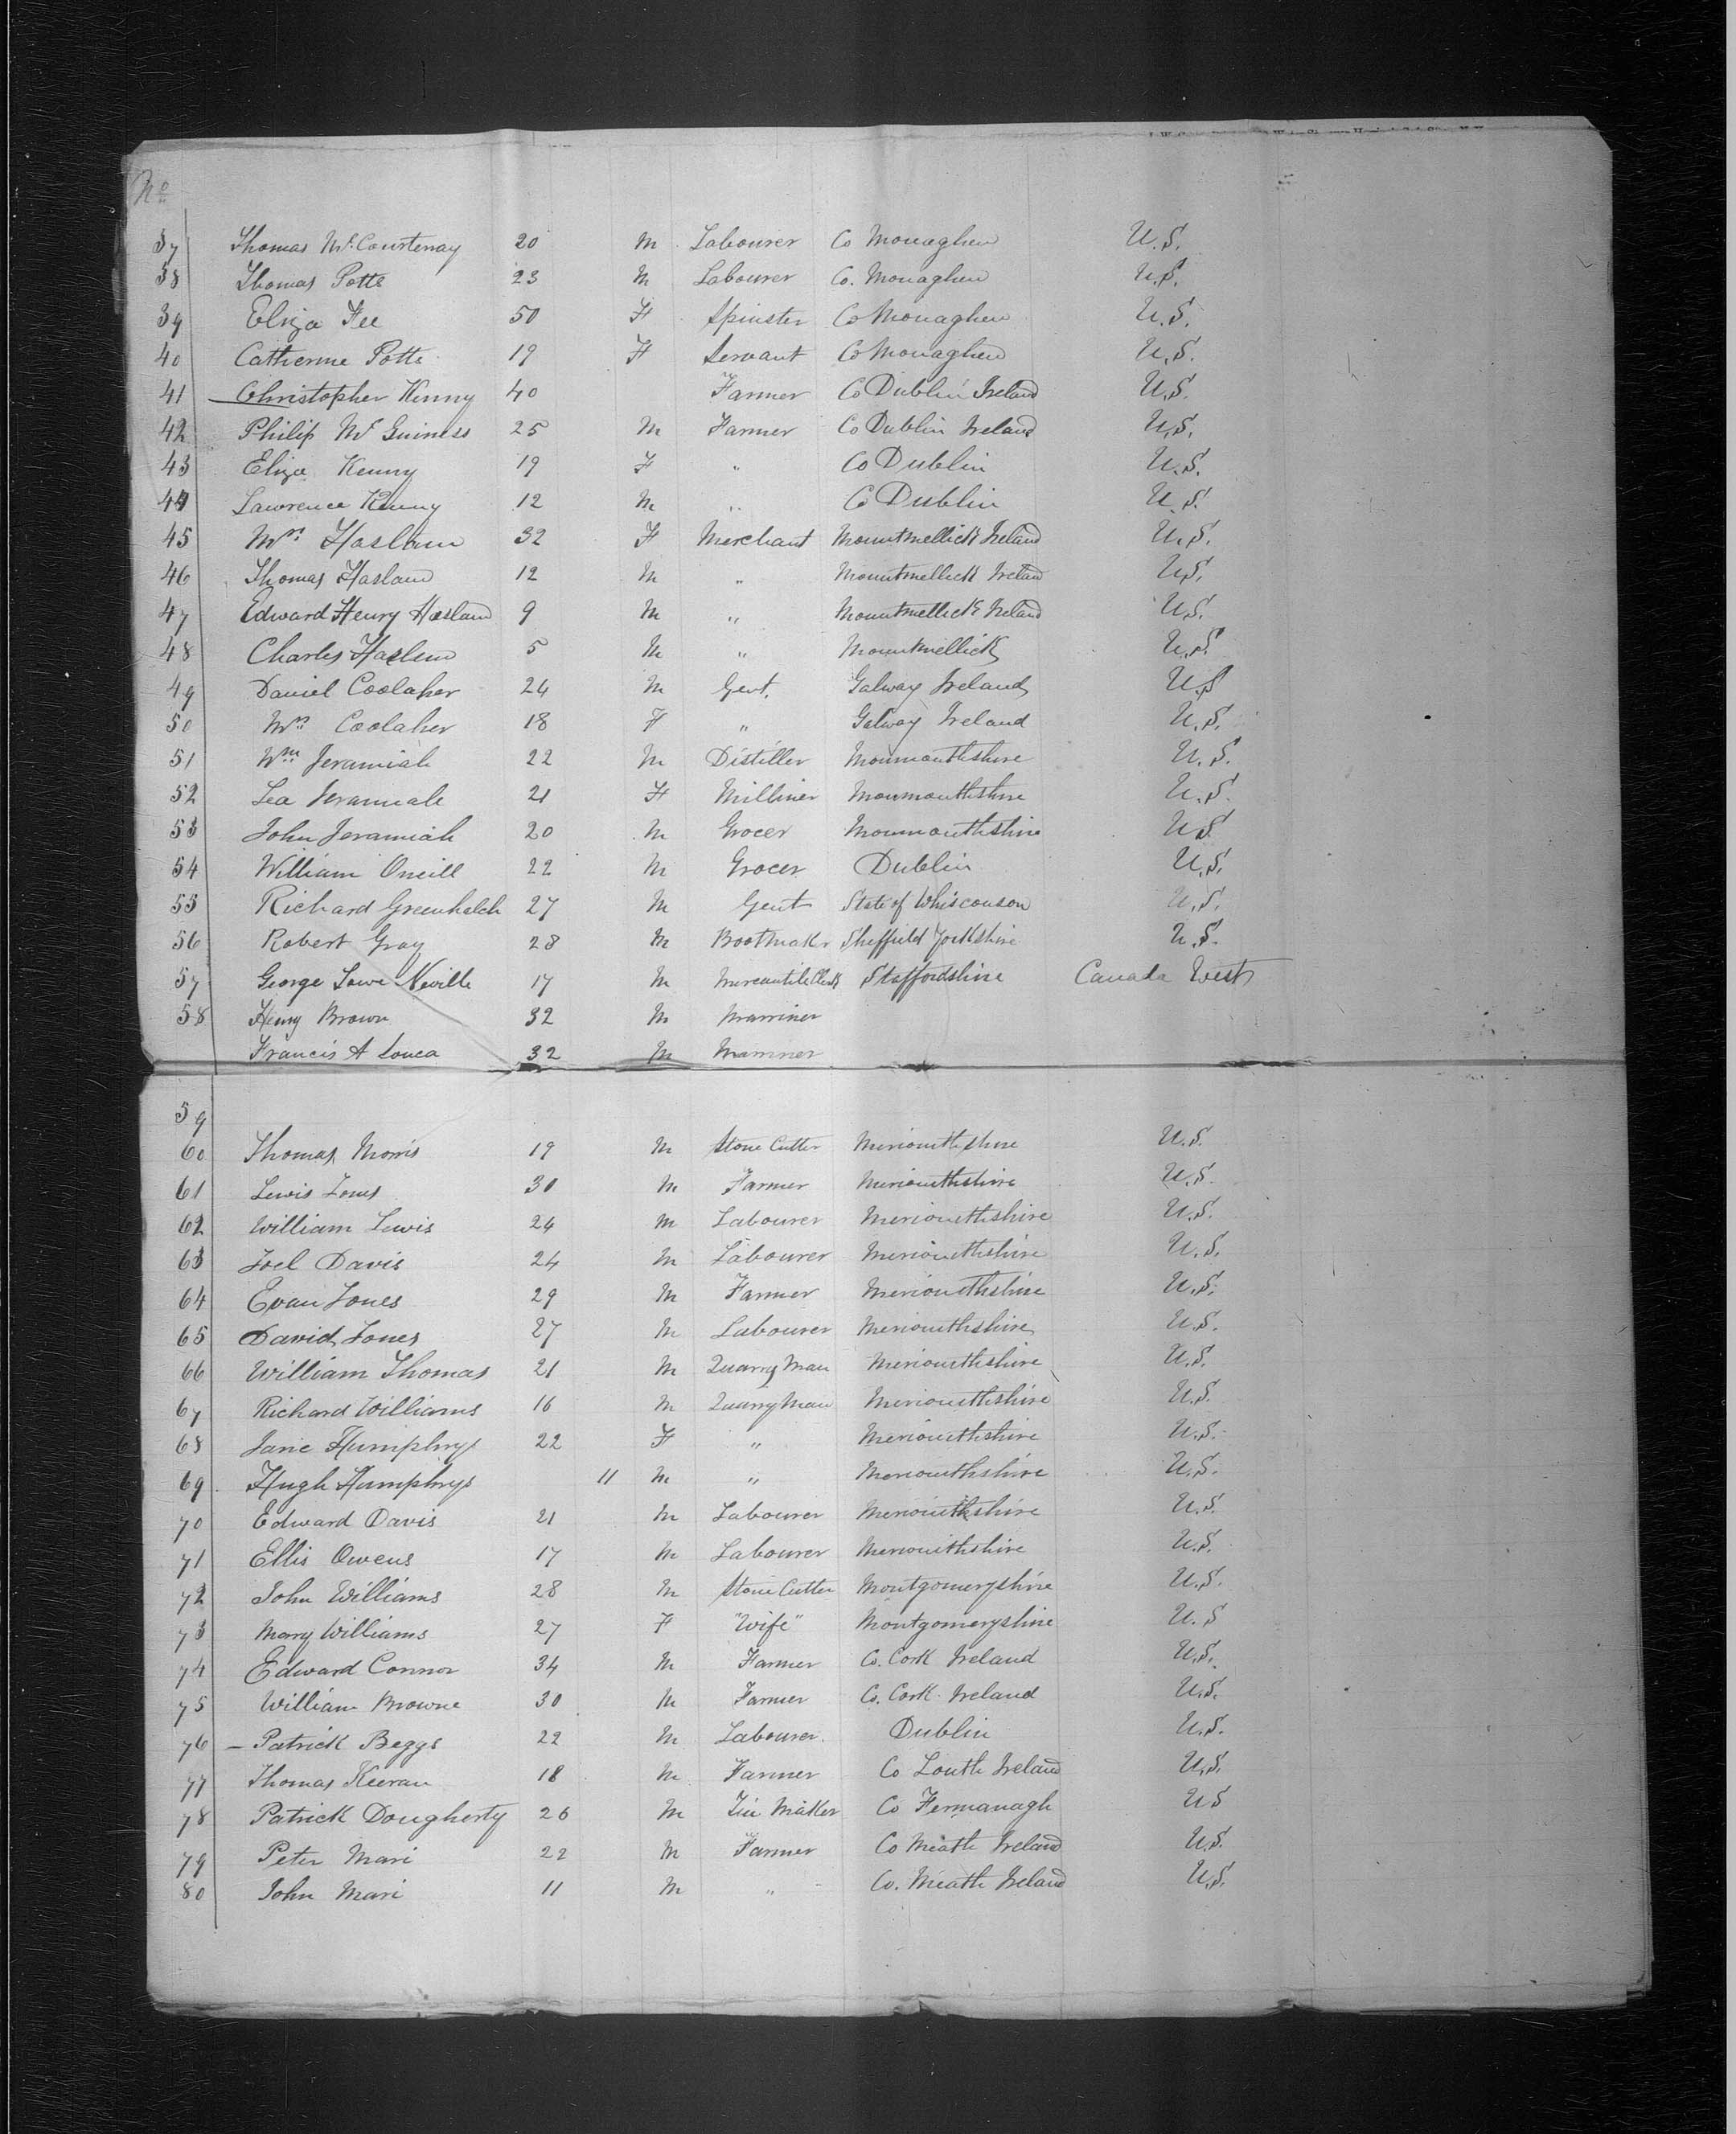 No
37 Thomas Mc Courtenay 20 M Labourer Co Monaghen U.S.
38 Thomas Potts 23 M Labourer Co. Monaghen U.S.
39 Eliza Fee 50 F Spinster Co Monaghen U.S.
40 Catherine Potts 19 F Servant Co Monaghen U.S.
41 Christopher Kenny 40 Farmer Co Dublin Ireland U.S.
42 Philip Mc Guiness 25 M Farmer Co Dublin Ireland U.S.
43 Eliza Kenny 19 F " Co Dublin U.S.
44 Lawrence Kenny 12 M " Co Dublin U.S.
45 Mrs Haslam 32 F Merchant Mountmellick Ireland U.S.
46 Thomas Haslam 12 M " Mountmellick Ireland U.S.
47 Edward Henry Haslam 9 M " Mountmellick Ireland U.S.
48 Charles Haslem 5 M " Mountmellick U.S.
49 Daniel Coolaher 24 M Gent. Galway Ireland U.S
50 Mrs Coolaher 18 F " Galway Ireland U.S.
51 Wm Jeramiah 22 M Distiller Monmouthshire U.S.
52 Lea Jeramiah 21 F Milliner Monmouthshire U.S.
53 John Jeramiah 20 M Grocer Monmouthshire U.S
54 William Oneill 22 M Grocer Dublin U.S.
55 Richard Greenhalch 27 M Gent State of Whisconson U.S.
56 Robert Gray 28 M Bootmaker Sheffield Yorkshire U.S.
57 George Lowe Neville 17 M Mercantile Clerk Staffordshire Canada West
58 Henry Brown 32 M Marriner
Francis A 32 M Marriner
59
60 Thomas Morris 19 M Stone Cutter Merionithshire U.S.
61 Lewis Jones 30 M Farmer Merionithshire U.S.
62 William Lewis 24 M Labourer Merionithshire U.S.
63 Joel Davis 24 M Labourer Merionithshire U.S.
64 Evan Jones 29 M Farmer Merionithshire U.S.
65 David Jones 27 M Labourer Merionithshire U.S.
66 William Thomas 21 M Quarry Man Merionithshire U.S.
67 Richard Williams 16 M Quarry Man Merionithshire U.S.
68 Jane Humphrys 22 F " Merionithshire U.S.
69 Hugh Humphrys 11 M " Merionithshire U.S.
70 Edward Davis 21 M Labourer Merionithshire U.S.
71 Ellis Owens 17 M Labourer Merionithshire U.S.
72 John Williams 28 M Stone Cutter Montgomeryshire U.S.
73 Mary Williams 27 F "Wife" Montgomeryshire U.S
74 Edward Connor 34 M Farmer Co. Cork Ireland U.S.
75 William Browne 30 M Farmer Co. Cork Ireland U.S.
76 – Patrick Beggs 22 M Labourer. Dublin U.S.
77 Thomas Keeran 18 M Farmer Co Louth Ireland U.S.
78 Patrick Dougherty 26 M Tin Maker Co Fermanagh U S
79 Peter Mari 22 M Farmer Co Meath Ireland U.S.
80 John Mari 11 M " Co. Meath Ireland U.S.